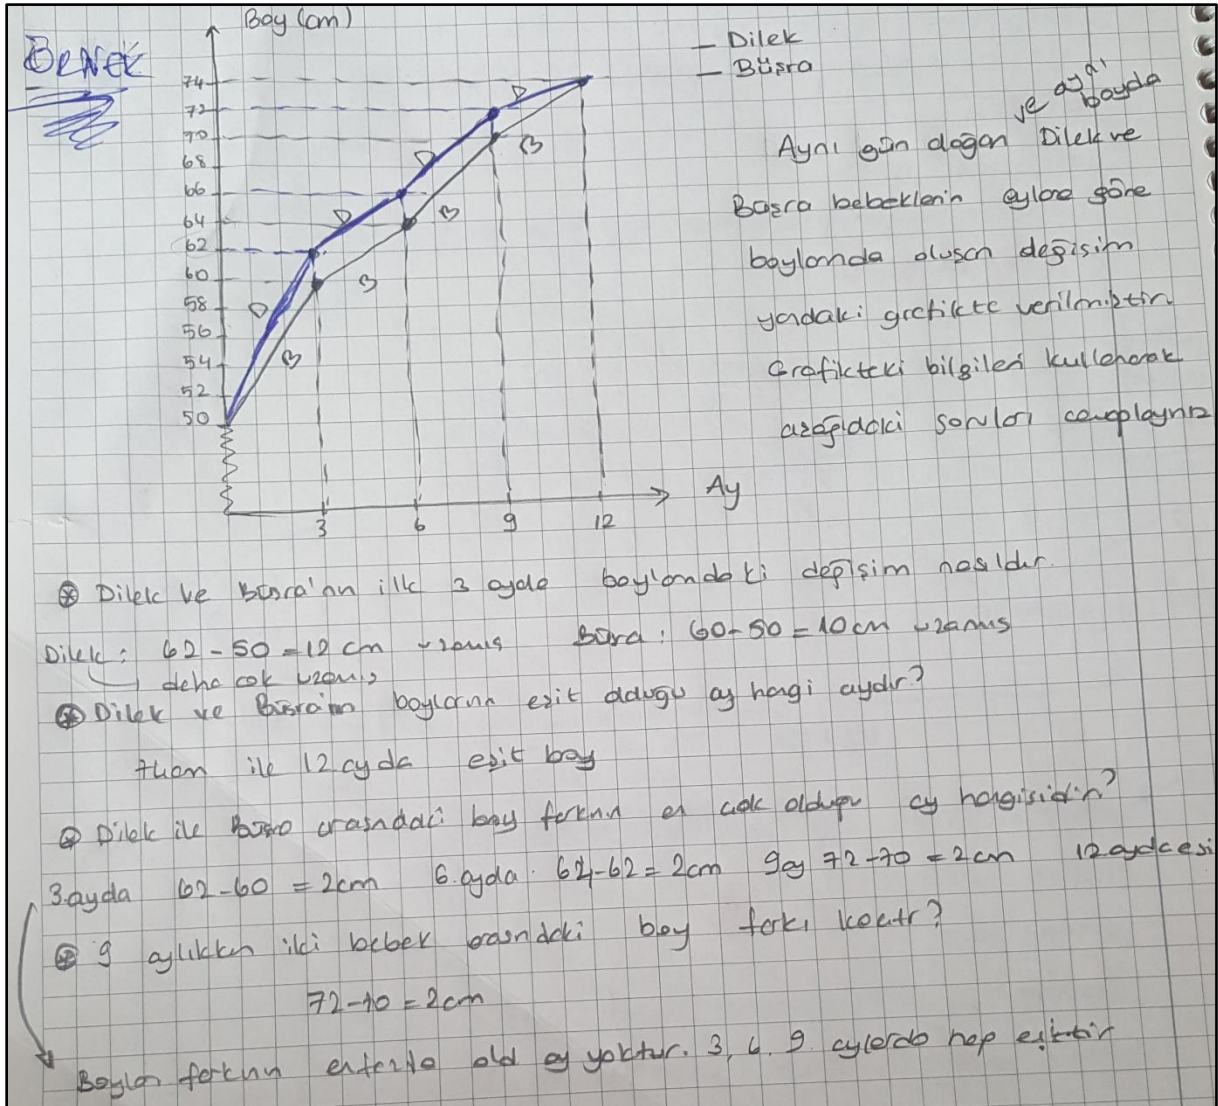 Boy (cm)
ÖRNEK
— Dilek
— Büşra
74
72
70
68
66
64
62
60
58
56
54
52
50
D
D
D
D
B
B
B
B
3
6
9
12
Ay
ve aynı boyda
Aynı gün doğan Dilek ve
Büşra bebeklerin aylara göre
boylarında oluşan değişim
yandaki grafikte verilmiştir.
Grafikteki bilgileri kullanarak
aşağıdaki soruları cevaplayınız
⊛ Dilek ve Büşra'nın ilk 3 ayda boylarındaki değişim nasıldır.
Dilek: 62-50=12 cm uzamış Büşra: 60-50=10cm uzamış
daha çok uzamış
⊛ Dilek ve Büşra'nın boylarının eşit olduğu ay hangi aydır?
ile 12 ayda eşit boy
⊛ Dilek ile Büşra arasındaki boy farkının en çok olduğu ay hangisidir?
3.ayda 62-60=2cm 6.ayda 64-62=2cm 9ay 72-70=2cm 12 ayda eşi
⊛ 9 aylıkken iki bebek arasındaki boy farkı kaçtır?
72-70=2cm
Boyları farkının en fazla old ay yoktur. 3, 6, 9. aylarda hep eşittir